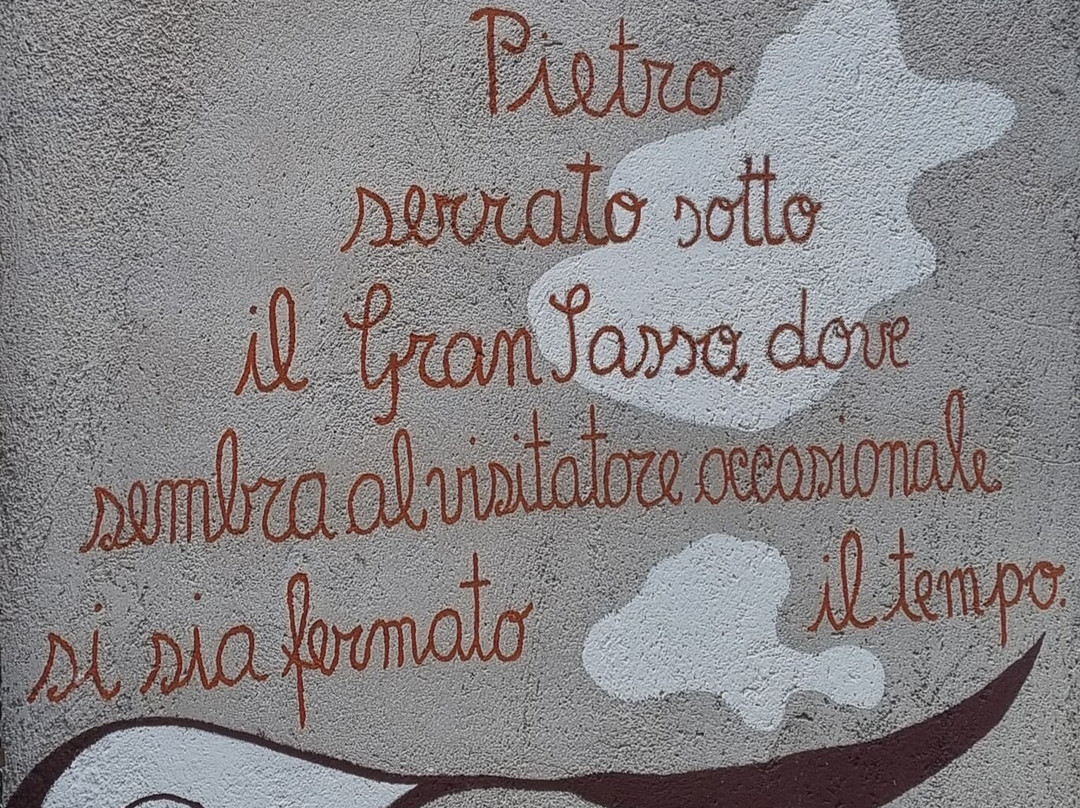 Pietro
serrato sotto
il Gran Sasso, dove
sembra al visitatore occasionale
si sia fermato il tempo.